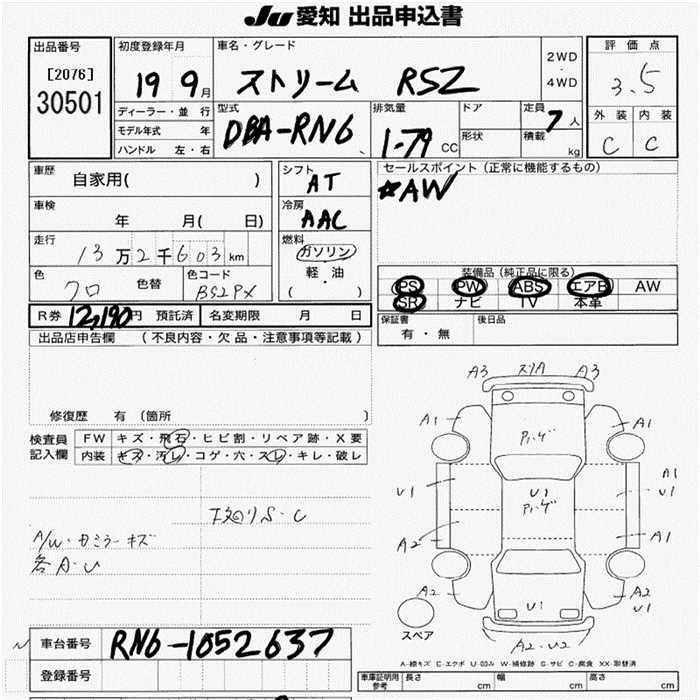 Ju 愛知 出品申込書
出品番号
[2076]
30501
初度登録年月
19 9月
車名・グレード
ストリーム RSZ
2WD
・
4WD
評価点
3.5
ディーラー・並行
モデル年式 年
ハンドル 左・右
型式
DBA-RN6
排気量
1-79 CC
ドア
形状
定員
7人
積載
kg
外装 内装
C C
車歴
自家用( )
車検
年 月( 日)
走行
13万2千603km
色
クロ
色替
色コード
BS2PX
シフト
AT
冷房
AAC
燃料
ガソリン
軽・油
( )
セールスポイント(正常に機能するもの)
☆AW
装備品(純正品に限る)
PS PW ABS エアB AW
SR ナビ TV 本革
R券 12,190円 預託済
名変期限 月 日
保証書
有・無
後日品
出品店申告欄 (不良内容・欠品・注意事項等記載)
修復歴 有〔箇所 〕
検査員
記入欄
FW キズ・飛石・ヒビ割・リペア跡・X要
内装 キズ・汚レ・コゲ・穴・スレ・キレ・破レ
A/W・カミラーキズ
各A・U
A3 スリA A3
A1 A1
U1 U1
パーゲ
A1
U1
A2 A1
A2 A2
U1
U1
A2・U2
スペア
A-線キズ E-エクボ U-凹み W-補修跡 S-サビ C-腐食 XX-取替済
車台番号
RN6-1052637
登録番号
車庫証明用
参考
長さ cm
幅 cm
高さ cm